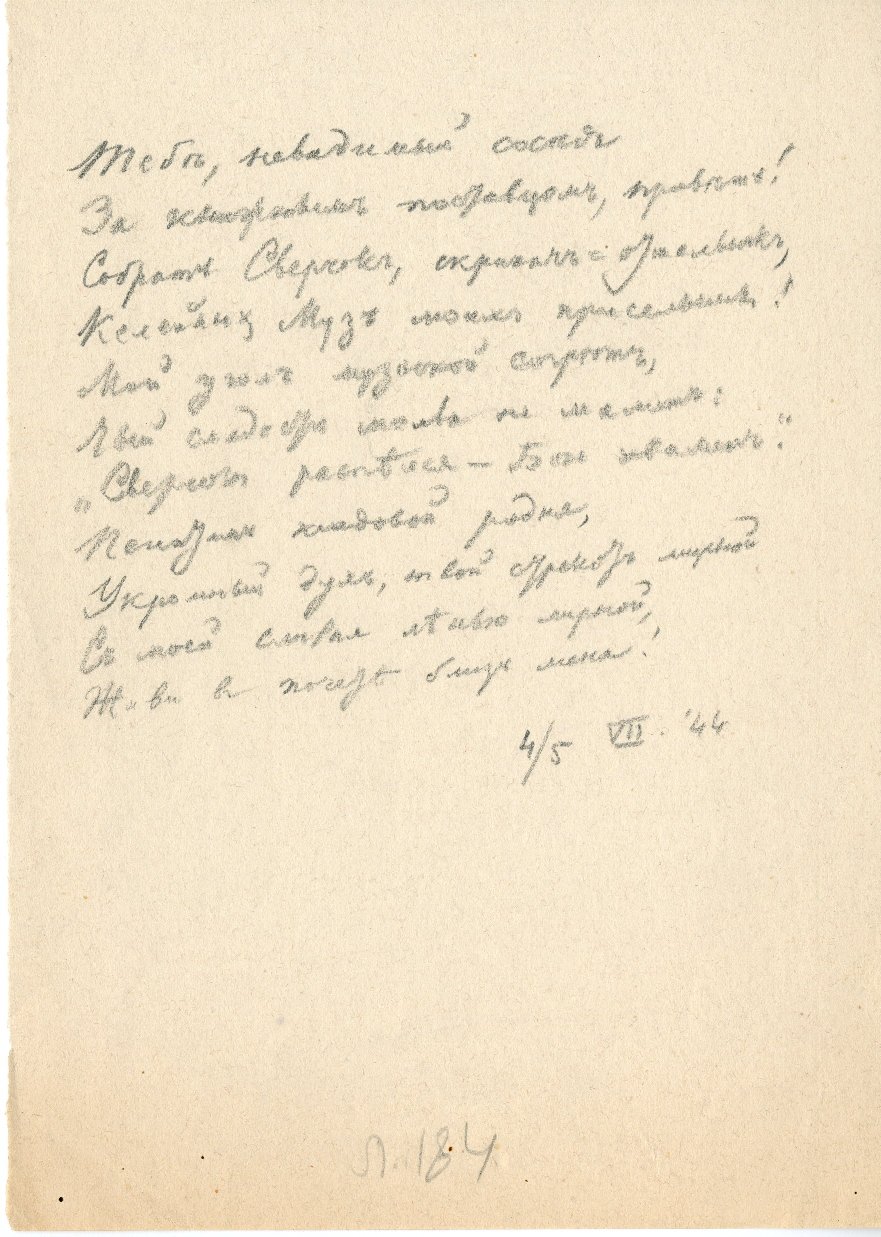 Тебѣ, невидимый сосѣдъ
За книжнымъ поставцомъ, привѣтъ!
Собратъ Сверчокъ, скрипачъ=отшельникъ,
Келейныхъ Музъ моихъ присельникъ!
Мой уголъ музыкой согрѣтъ,
сладость молва не
„Сверчокъ распѣлся — Богъ
кладовой родня,
Укромный духъ, твой стрекотъ мирный
Съ моей сливая лѣнью лирной,
Живи въ почетѣ близъ меня!
4/5 VII. '44
Л. 184